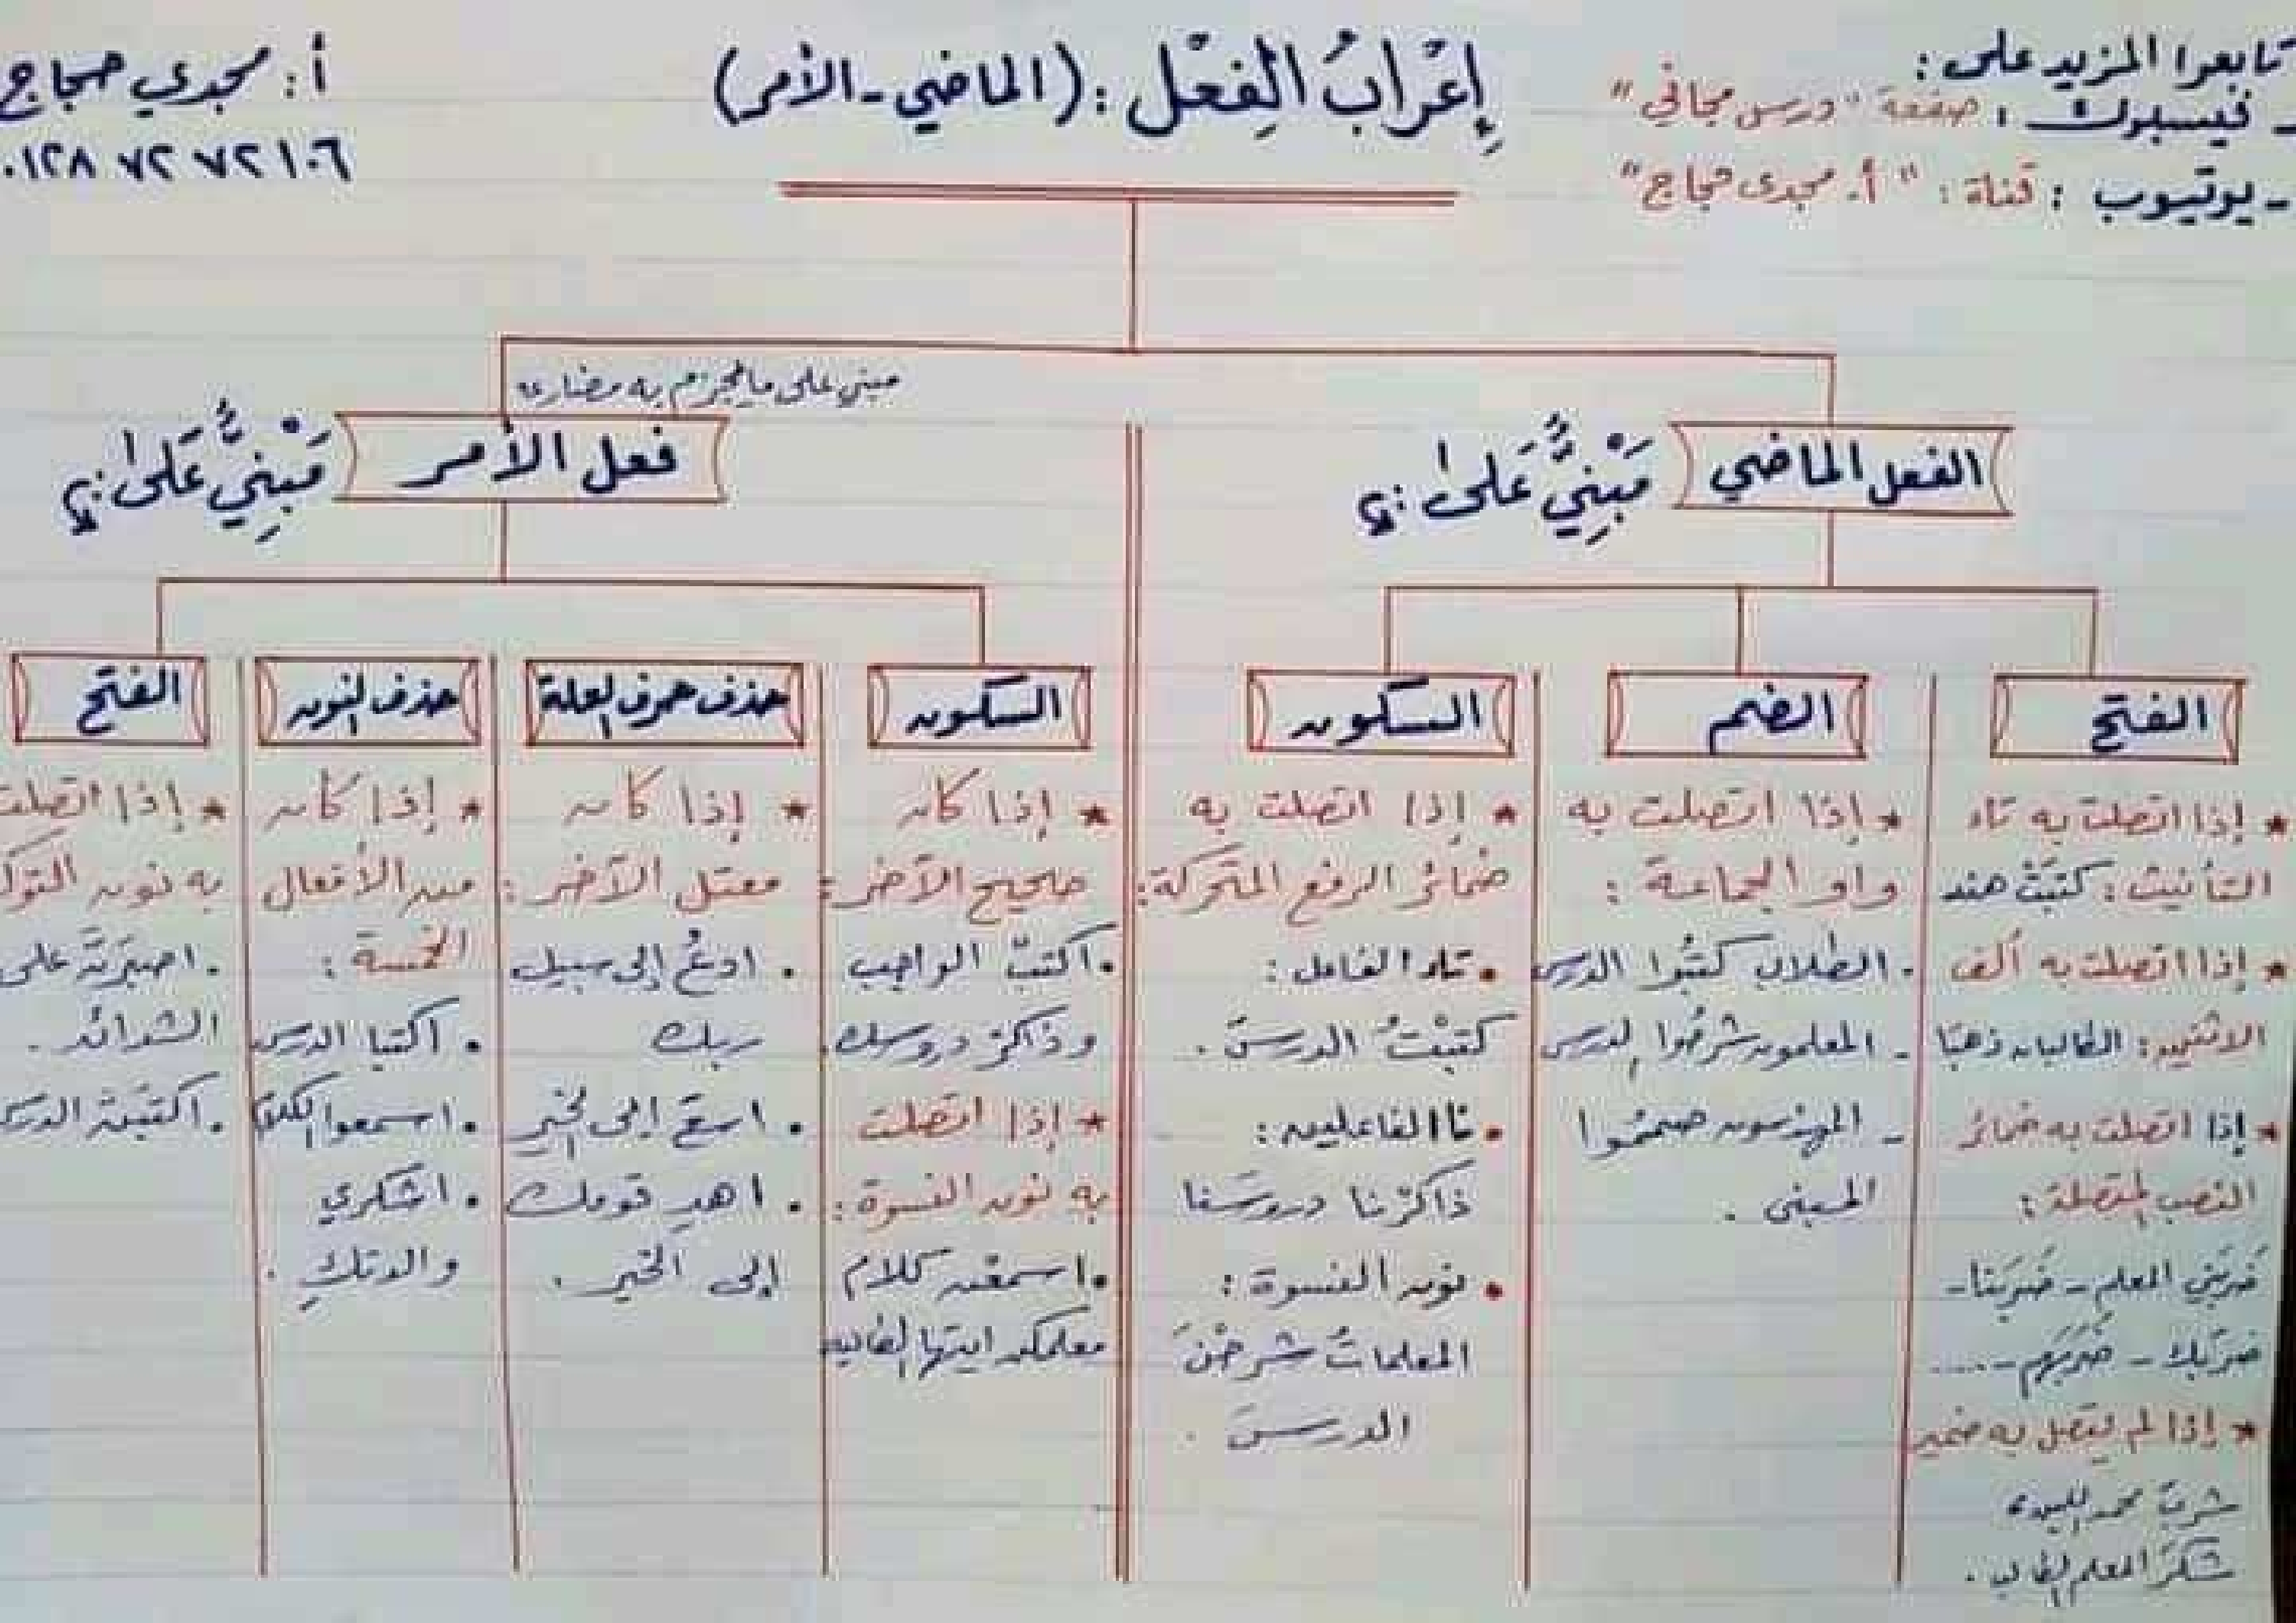 تابعوا المزيد على:
- فيسبوك: صفحة "درس مجاني"
- يوتيوب: قناة: "أ. مجدى حجاج"
إِعْرَابُ الفِعْل: (الماضي-الأمر)
أ: مجدي حجاج
٠١٢٨ ٧٢ ٧٢ ١٠٦
الفعل الماضي مَبْنِيٌّ عَلى:
الفتح
* إذا اتصلت به تاء
التأنيث: كتبَتْ هند
* إذا اتصلت به ألف
الاثنين: الطالبان ذهبَا
* إذا اتصلت به ضمائر
النصب المتصلة:
ضربَني المعلم - ضربَنا-
ضربَك - ضربَهم-....
* إذا لم يتصل به ضمير
شربَ محمد اللبن
شكرَ المعلم الطالب.
الضم
* إذا اتصلت به
واو الجماعة:
. الطلاب كتبُوا الدرس
- المعلمون شرحُوا الدرس
- المهندسون صممُوا
المبنى.
السكون
* إذا اتصلت به
ضمائر الرفع المتحركة:
• تاء الفاعل:
كتبْتُ الدرسَ.
• نا الفاعلين:
ذاكرْنا دروسَنا
• نون النسوة:
المعلماتُ شرحْنَ
الدرسَ.
مبني على ما يجزم به مضارعه
فعل الأمر مَبْنِيٌّ عَلى:
السكون
* إذا كان
صحيح الآخر:
. اكتبْ الواجب
وذاكرْ دروسك.
* إذا اتصلت
به نون النسوة:
. اسمعْن كلام
معلمكن ايتها الطالبات
حذف حرف العلة
* إذا كان
معتل الآخر:
. ادعُ إلى سبيل
ربك
. اسعَ إلى الخير
. اهدِ قومك
إلى الخير.
حذف النون
* إذا كان
من الأفعال
الخمسة:
. اكتبا الدرس
. اسمعوا الكلام
. اشكري
والدتكِ.
الفتح
* إذا اتصلت
به نون التوك
. اصبرَنَّ على
الشدائد.
. اكتبَنَّ الدرس